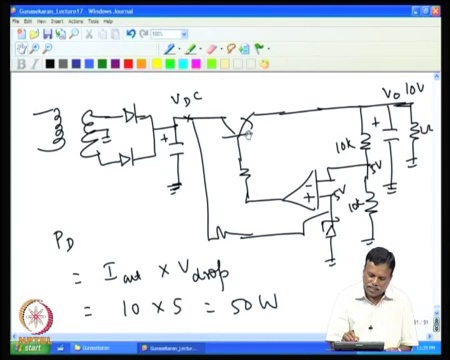 Gunasekaran_Lecture17 - Windows Journal
File Edit View Insert Actions Tools Help
100%
B I
VDC
Vo 10V
+
+
10k
5V
-
5V
+
10k
PD
= Iout × Vdrop
= 10 × 5 = 50W
start
Gunasekaran
Gunasekaran_Lectur...